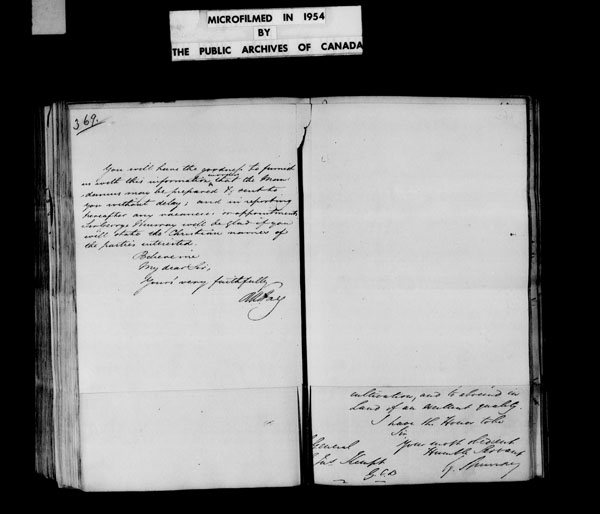 MICROFILMED IN 1954
BY
THE PUBLIC ARCHIVES OF CANADA
369.
You will have the goodness to furnish
us with this information, that the Man
damus may be prepared & sent to
you without delay; and in reporting
hereafter any vacancies or appointments
Sir George Murray will be glad if you
will state the Christian names of
the parties interested.
Believe me
My dear Sir,
Yours very faithfully
cultivation, and to abound in
land of an excellent quality.
I have the Honor to be
Sir
Your most obedient
Humble Servant
G. Murray
General
Jas Kempt
G.C.B